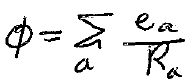 ϕ = ∑_a e_a / R_a